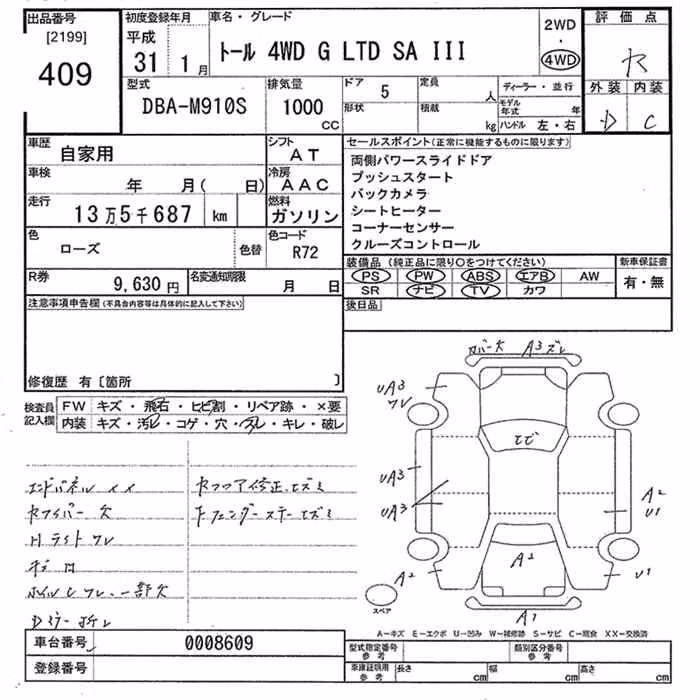 出品番号
[2199]
409
初度登録年月
平成
31 1月
車名・グレード
トール 4WD G LTD SA III
2WD
・
4WD
評価点
外装 内装
D C
型式
DBA-M910S
排気量
1000
CC
ドア 5
形状
定員 人
積載 kg
ディーラー・並行
モデル年式 年
ハンドル 左・右
車歴
自家用
シフト
AT
車検
年 月( 日)
冷房
AAC
走行
13万5千687 km
燃料
ガソリン
色
ローズ
色替
色コード
R72
R券
9,630 円
名変通知期限
月 日
セールスポイント(正常に機能するものに限ります)
両側パワースライドドア
プッシュスタート
バックカメラ
シートヒーター
コーナーセンサー
クルーズコントロール
装備品 (純正品に限り○をつけてください)
PS PW ABS エアB AW
SR ナビ TV カワ
新車保証書
有・無
後日品
注意事項申告欄(不具合内容等は具体的に記入して下さい)
修復歴 有〔箇所 〕
検査員記入欄
FW キズ・飛石・ヒビ割・リペア跡・×要
内装 キズ・汚レ・コゲ・穴・スレ・キレ・破レ
A3 ズレ
UA3
ワレ
ヒビ
UA3
UA3
A2
U1
A2
A2
U1
A1
スペア
Hライトワレ
車台番号 0008609
登録番号
A－キズ E－エクボ U－凹み W－補修跡 S－サビ C－腐食 XX－交換済
型式指定番号
参考
類別区分番号
参考
車庫証明用
参考
長さ cm
幅 cm
高さ cm